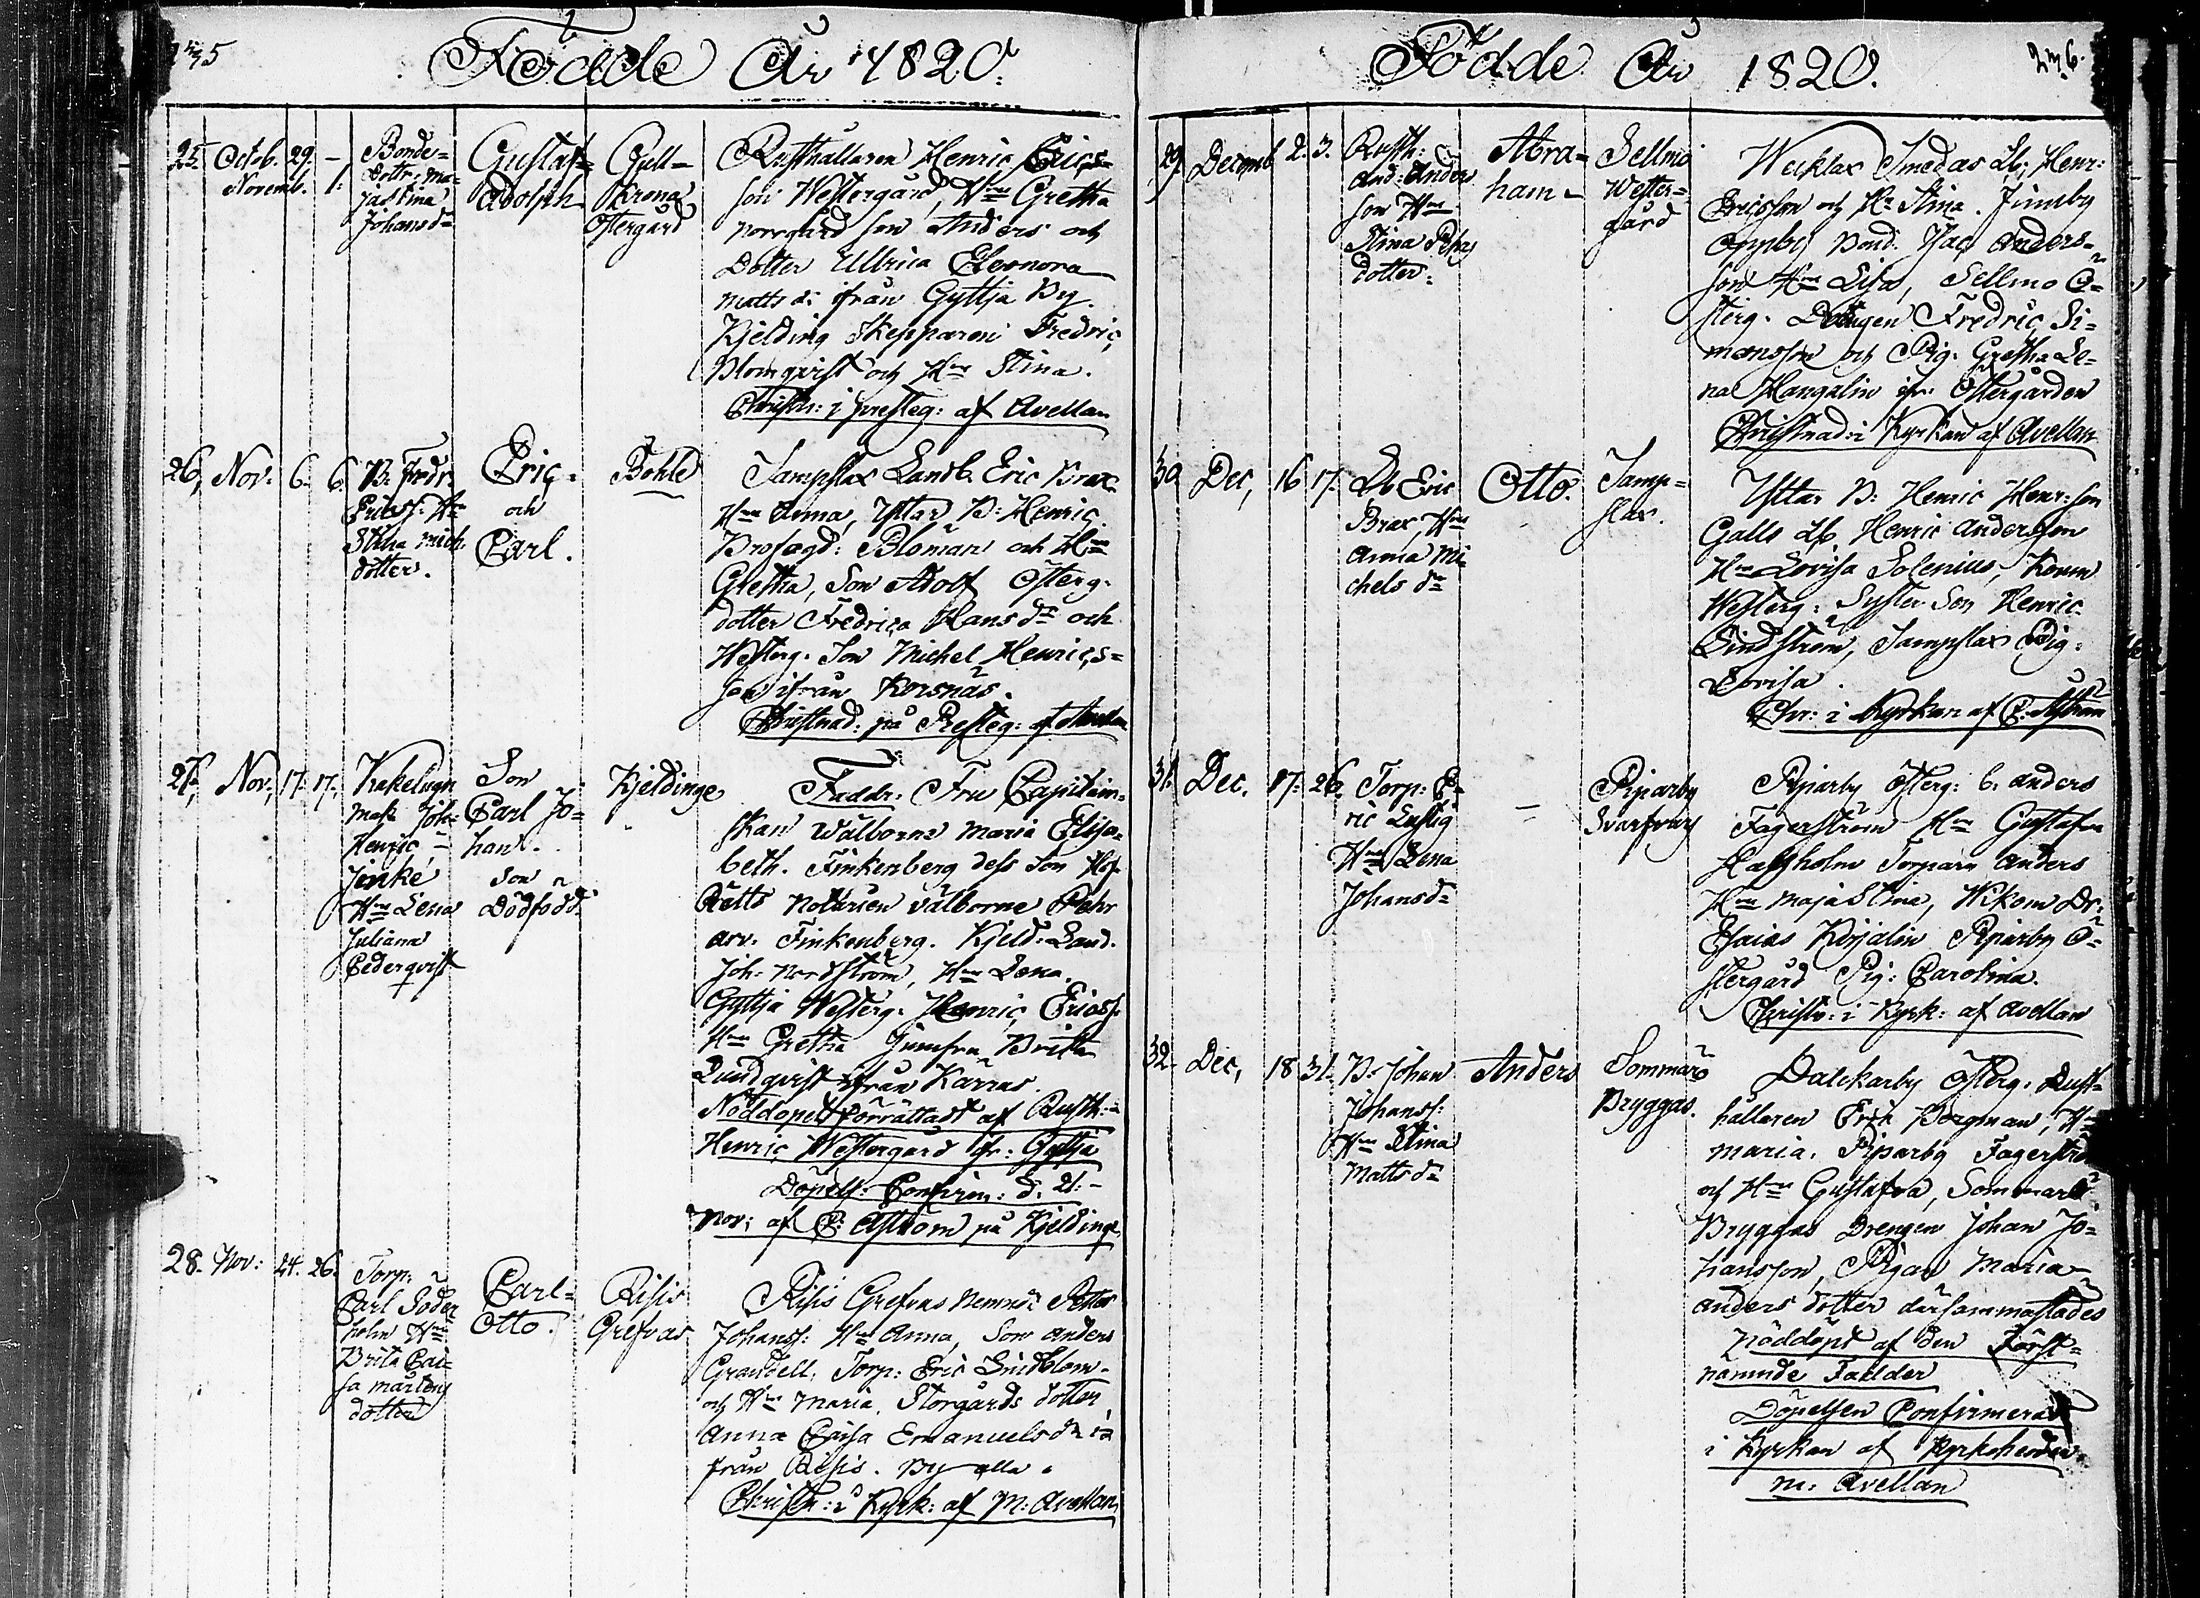 235
Födde År 1820.
25. Octob. 29. –
Novemb. 1.
Bonde-
Dottr: Ma-
ja Stina
Johansdr
Gustaf
Adolph
Gull-
krona
Östergård
Rusthållaren Henric Erics-
son Westergård, Hru Gretha
Norrgård son Anders och
Dotter Ullrica Eleonora
Mattsd: ifrån Gyttja By.
Kjelding Skepparen Fredric
Blomqvist och Hru Stina.
Christn: i Presteg: af Avellan
26, Nov: 6. 6.
B: Fredr:
Ericss: Hru
Stina Mich:
dotter.
Eric
och
Carl.
Bohle
Sampslax Landb. Eric Brax
Hru Anna, Yttar B: Henric
Brofogd: Bloman och Hru
Gretha, Son Adolf Österg:
dotter Fredrica Hansdr och
Westerg. Son Michel Henrics-
son ifrån Korsnäs.
Christnad: på Presteg: af Avellan
27, Nov, 17. 17.
Kakelugn
mak Joh:
Henric
Jenke
Hru Lena
Juliana
Cederqvist
Son
Carl Jo-
han.
Son
Dödfödd
Kjeldinge
Faddr: Fru Capitain-
skan Wälborne Maria Elisa-
beth. Finkenberg dess Son Hof-
Rätts Notarien Välborne Pehr
Arv. Finkenberg. Kjeld: Land.
Joh: Nordström, Hru Lena.
Gyttja Westerg: Henric Ericss:
Hru Gretha Jumfru Britta
Lundqvist ifrån Kärras.
Nöddopet förrättadt af Rusth:
Henric Westergård fr: Gyttja
Döpels: Confirm: d. 21:
Nov: af C: Åström på Kjeldinge
28. Nov: 24. 26.
Torp:
Carl Söder
holm Hru
Brita Cai-
sa Mårtens
dotter
Carl
Otto.
Risis
Grefvas
Risis Grefvas Nemnd: Petter
Johanss: Hru Anna, Son Anders
Grandell, Torp: Eric Lindblom
och Hru Maria. Storgårds dotter
Anna Cajsa Emanuelsdr i-
från Risis. By alla.
Christn: i Kyrk: af M: Avellan
236.
Födde År 1820.
29. Decemb 2. 3.
Rusth:
And: Anders
son Hru
Stina Pehrs
dotter.
Abra-
ham
Sellmo
Wester-
gård
Wecklax Smedas Lb: Henr:
Ericsson och Hru Stina. Finnby
Öppby Bond. Jac: Anders-
son Hru Lisa, Sellmo Ö-
sterg. Drängen Fredric Si-
monsson och Pig. Gretha Le-
na Hangelin ifr: Östergården
Christnad i Kyrkan af Avellan
30 Dec, 16 17.
Lb Eric
Brax, Hru
Anna Mi
chels dr
Otto.
Samp-
slax.
Yttar B: Henric Henr:son
Galls Lb. Henric Andersson
Hru Lovisa Solenius,
Westerg: Syster Son Henric
Lindström, Sampslax Pig:
Lovisa.
Chr: i Kyrkan af C: Åström
31. Dec. 17. 26.
Torp: E-
ric Lustig
Hru Lena
Johansdr
–
Piparby
Svarfvars
Piparby Österg: b. Anders
Fagerström Hru Gustafva
Torparn Anders
Hru Maja Stina, Wikom Dr:
Esaias Piparby Ö-
stergård Pig: Carolina.
Christn: i Kyrk: af Avellan
32. Dec, 18 31.
B: Johan
Johanss:
Hru Stina
Mattsdr
Anders
Sommarö
Bryggas.
Dalckarby Österg. Rust-
hållaren Erik Bergman, Hru
Maria. Piparby Fagerström
och Hru Gustafva, Sommarö
Bryggas Drengen Johan Jo-
hansson, Pigan Maria
Anders dotter dersammastädes
Nöddöpt af den Först-
nämnde Fadder
Döpelsen Confirmerat
i Kyrkan af Kyrkoherden
M. Avellan